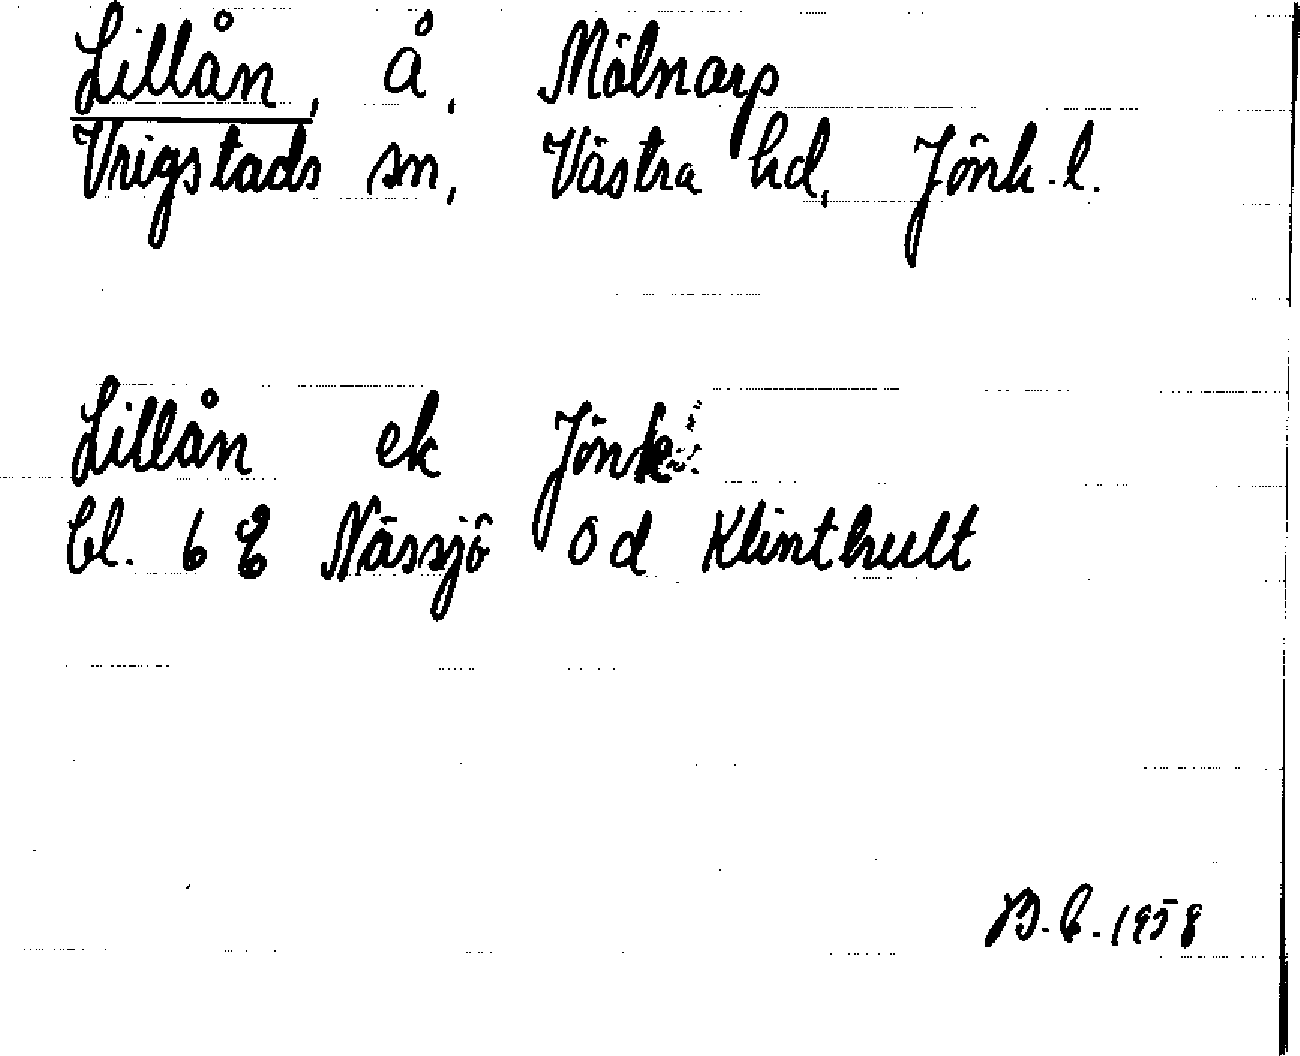 Lillån, å, Mölnarp
Vrigstads sn, Västra hd, Jönk. l.
Lillån ek Jönk
bl. 6 E Nässjö Od Klinthult
B. C. 1958